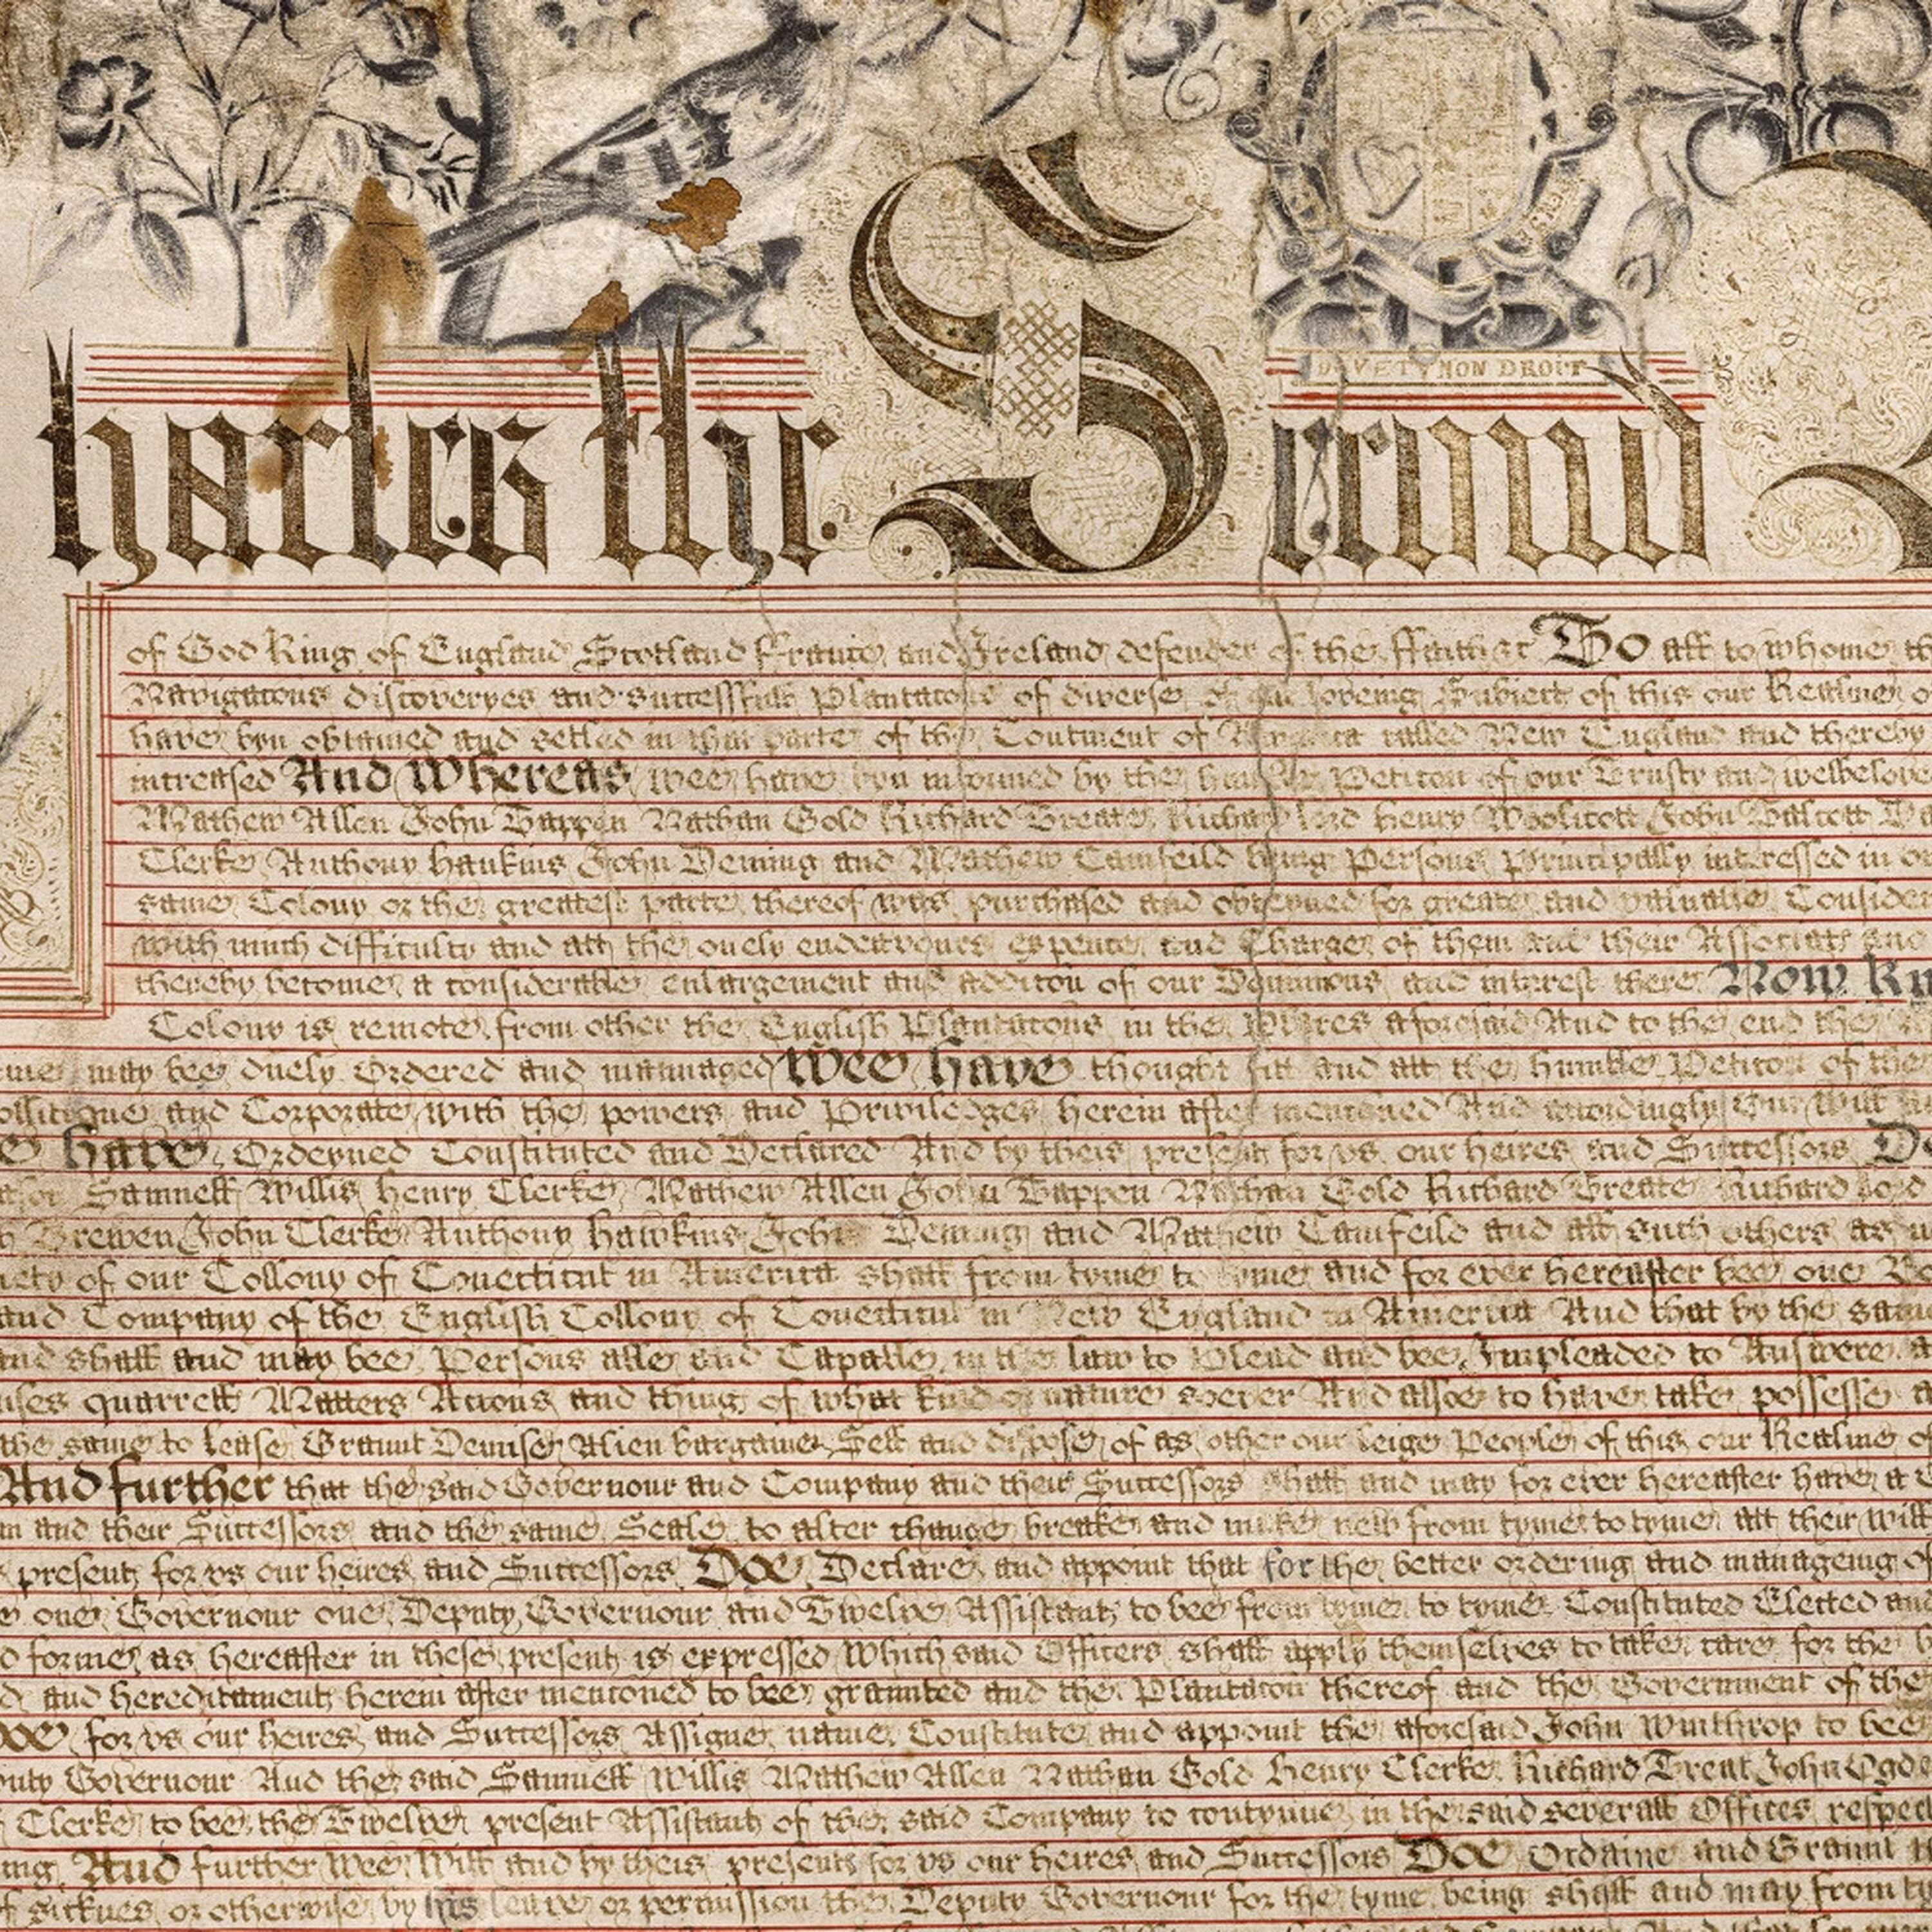 DV ET MON DROIT
harles the Second
of God King of England Scotland France and Ireland defender of the ffaith &c To all to whome
Navigacons discoveryes and successfull Plantacons of diverse of our loveing Subiects of this our Realme
have byn obtained and setled in that parte of the Continent of America called New England and thereby
increased And Whereas wee have byn informed by the humble Peticon of our Trusty and welbelov
Mathew Allen John Tappen Nathan Gold Richard Treate Richard Lord Henry Woolicott John Talcott
Clerke Anthony Hawkins John Deming and Mathew Camfeild being Persons Principally interessed in
same Colony or the greatest parte thereof was purchased and obteyned for greate and valuable Consider
with much difficulty and att the onely endeavours expence and Charge of them and their Associats and
thereby become a considerable enlargement and addicon of our Dominions and interest there Now Kn
Colony is remote from other the English Plantacons in the Places aforesaid And to the end the
may bee duely Ordered and mannaged Wee have thought fitt and att the humble Peticon of the
ollitique and Corporate with the powers and Priviledges herein after mencioned And accordingly Our Will
have Ordeyned Constituted and Declared And by theis presents for vs our heires and Successors D
Samuell Willis Henry Clerke Mathew Allen John Tappen Nathan Gold Richard Treate Richard Lord
Brewen John Clerke Anthony Hawkins John Deming and Mathew Camfeild and all such others as
iety of our Collony of Conecticut in America shall from tyme to tyme and for ever hereafter bee one Bo
and Company of the English Collony of Conecticut in New England in America And that by the same
and shall and may bee Persons able and Capable in the law to Plead and bee Impleaded to Answere
uses quarrells Matters Accons and things of what kind or nature soever And alsoe to have take possesse
the same to lease Graunt Demise Alien bargaine Sell and dispose of as other our leige People of this our Realme
And further that the said Governour and Company and their Successors shall and may for ever hereafter have a
and their Successors and the same Seale to alter change breake and make new from tyme to tyme att their will
presents for vs our heires and Successors Doe Declare and appoint that for the better ordering and manageing of
one Governour one Deputy Governour and Twelve Assistants to bee from tyme to tyme Constituted Elected and
forme as hereafter in these presents is expressed Which said Officers shall apply themselves to take care for the
and hereditaments herein after mencioned to bee graunted and the Plantacon thereof and the Government of the
for vs our heires and Successors Assigne name Constitute and appoint the aforesaid John Winthrop to bee
puty Governour And the said Samuell Willis Mathew Allen Nathan Gold Henry Clerke Richard Treat John Ogd
Clerke to bee the Twelve present Assistants of the said Company to contynue in the said severall Offices respe
ing And further Wee Will and by theis presents for vs our heires and Successors Doe Ordaine and Graunt
of sicknes or otherwise by his leave or permission the Deputy Governour for the tyme being shall and may from